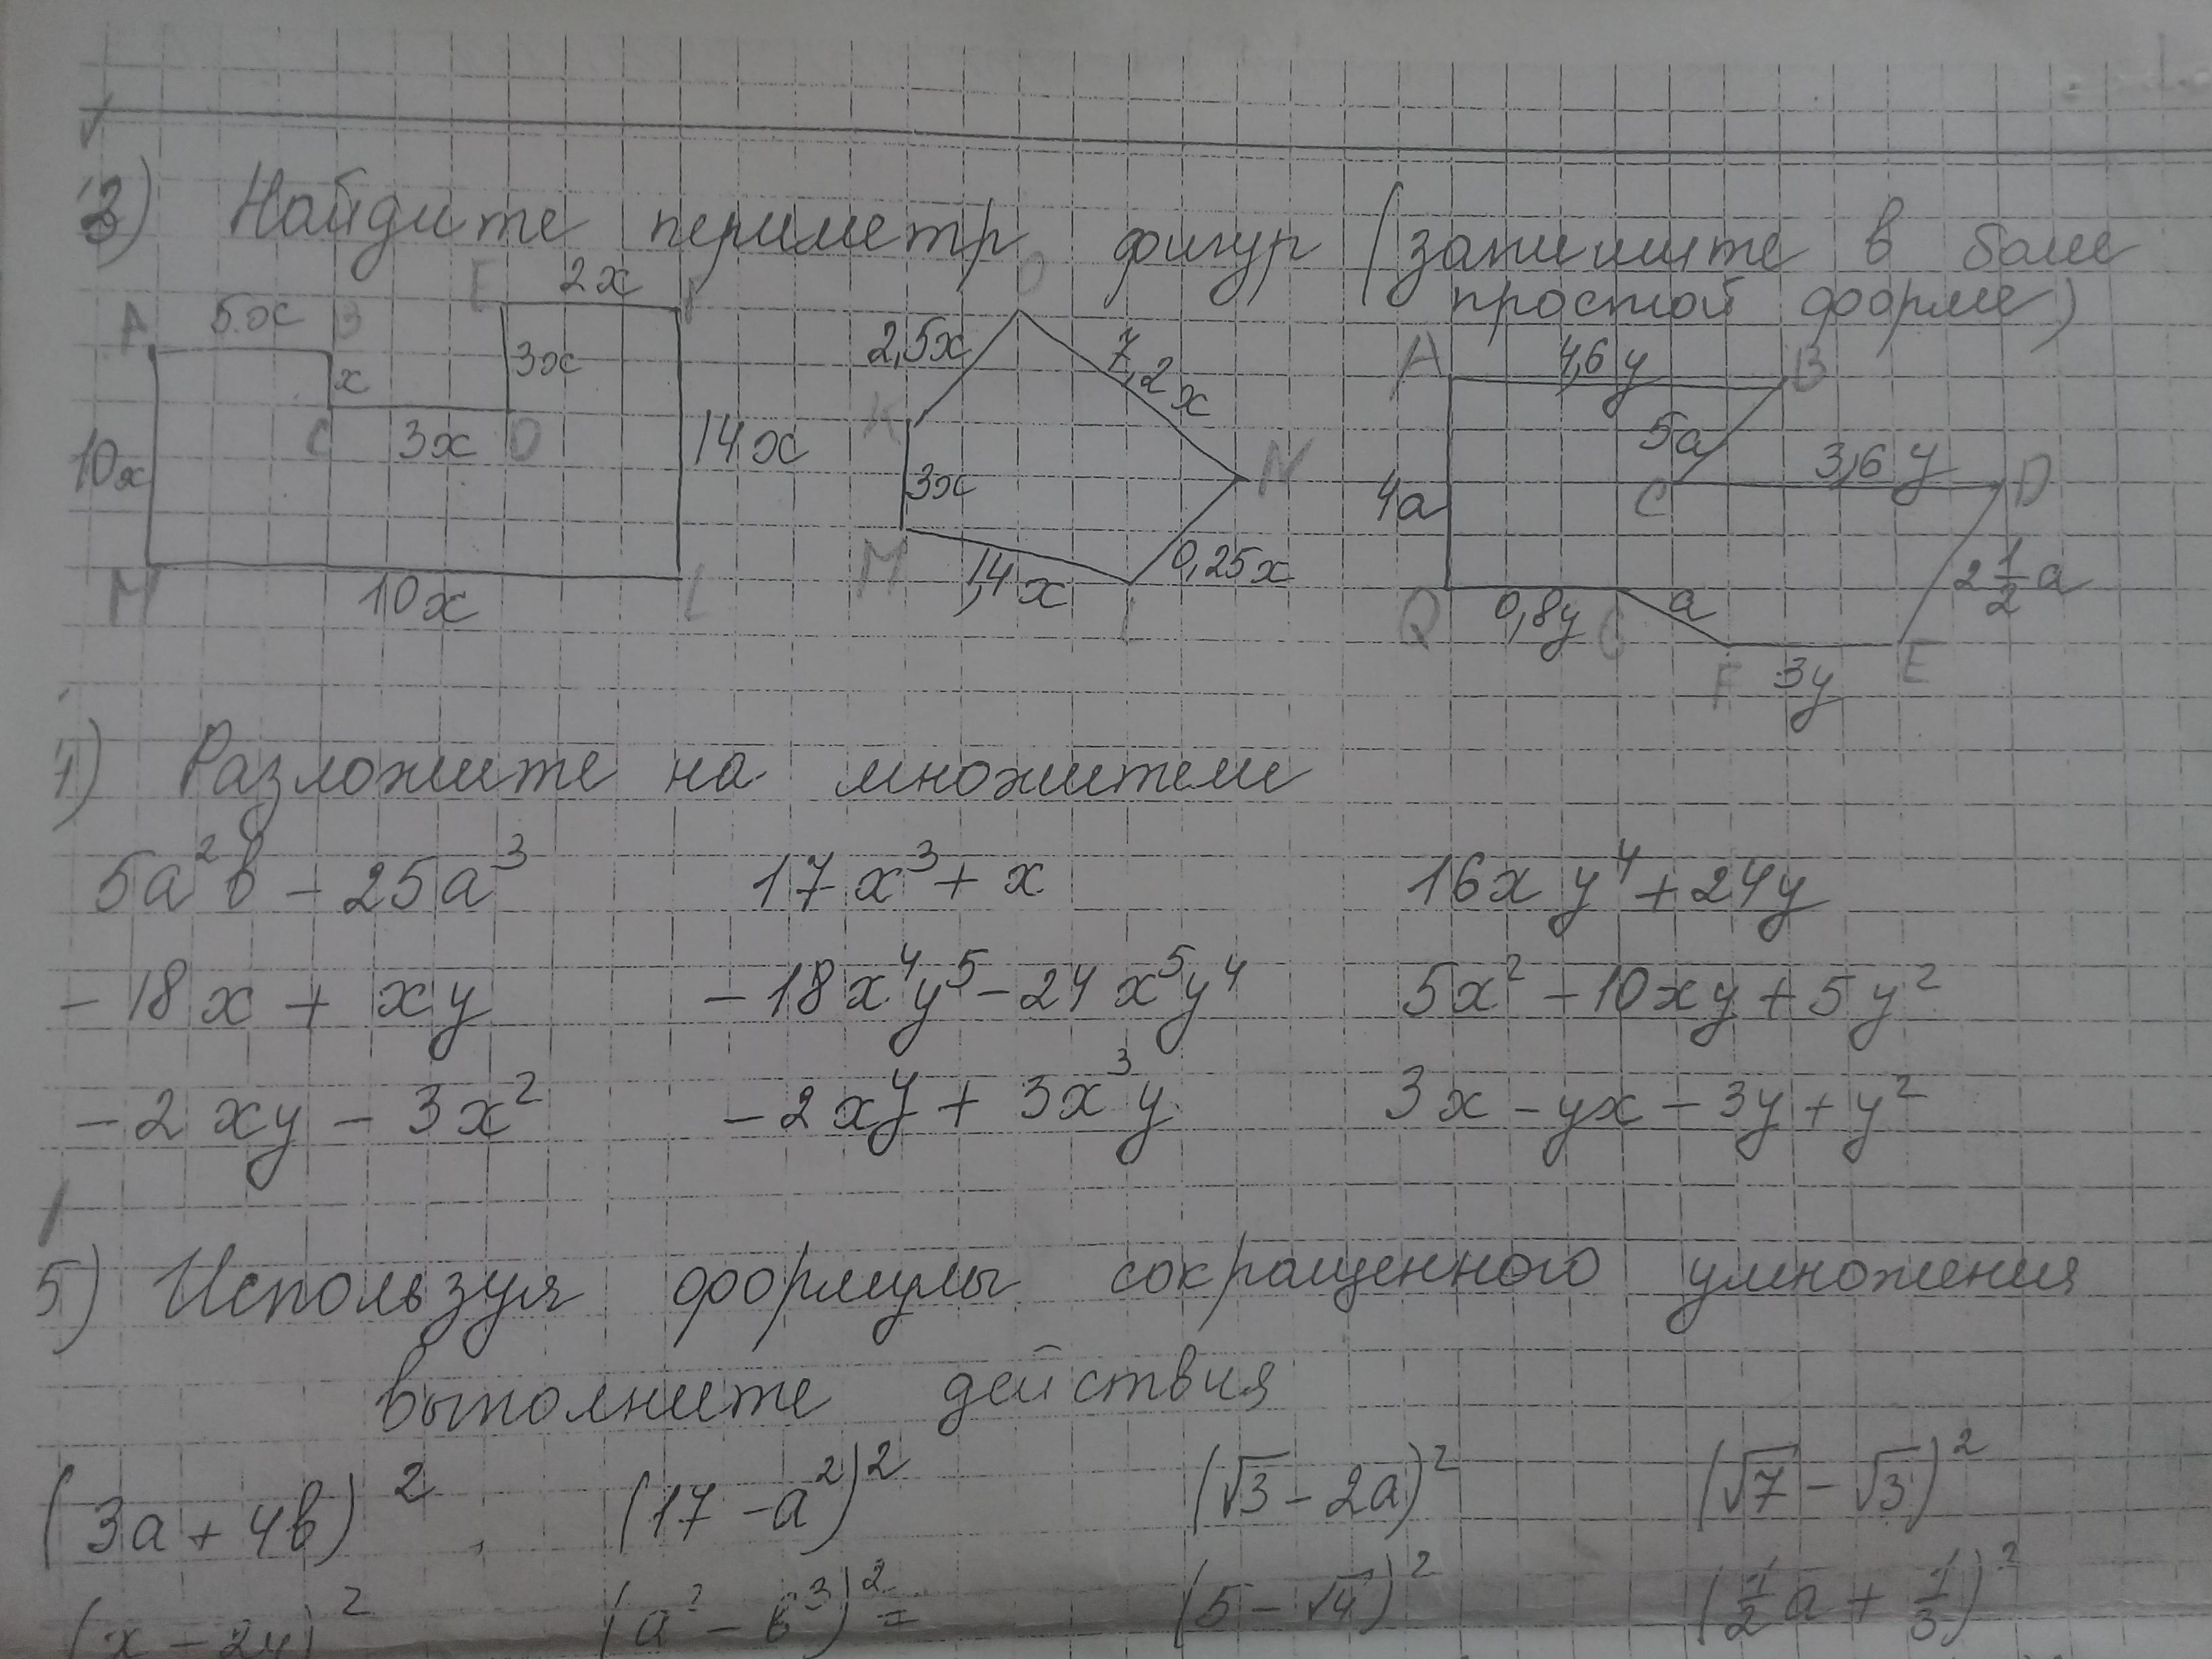 3) Найдите периметр фигур (запишите в боле
простой форме)
A 5x B E 2x F
x 3x
10x C 3x D 14x
M 10x L
O
2,5x 7,2x
K N
3x
M 1,4x L 0,25x
A 4,6y B
5a
C 3,6y D
4a 2 1/2 a
Q 0,8y C a
F 3y E
4) Разложите на множители
5a²b - 25a³ 17x³ + x 16xy⁴ + 24y
-18x + xy -18x⁴y⁵ - 24x⁵y⁴ 5x² - 10xy + 5y²
-2xy - 3x² -2xy³ + 3x³y 3x - yx - 3y + y²
5) Используя формулы сокращенного умножения
выполните действия
(3a + 4b)² (17 - a²)² (√3 - 2a)² (√7 - √3)²
(x - 2y)² (a² - b³)² = (5 - √4)² (1/2 a + 1/3)²